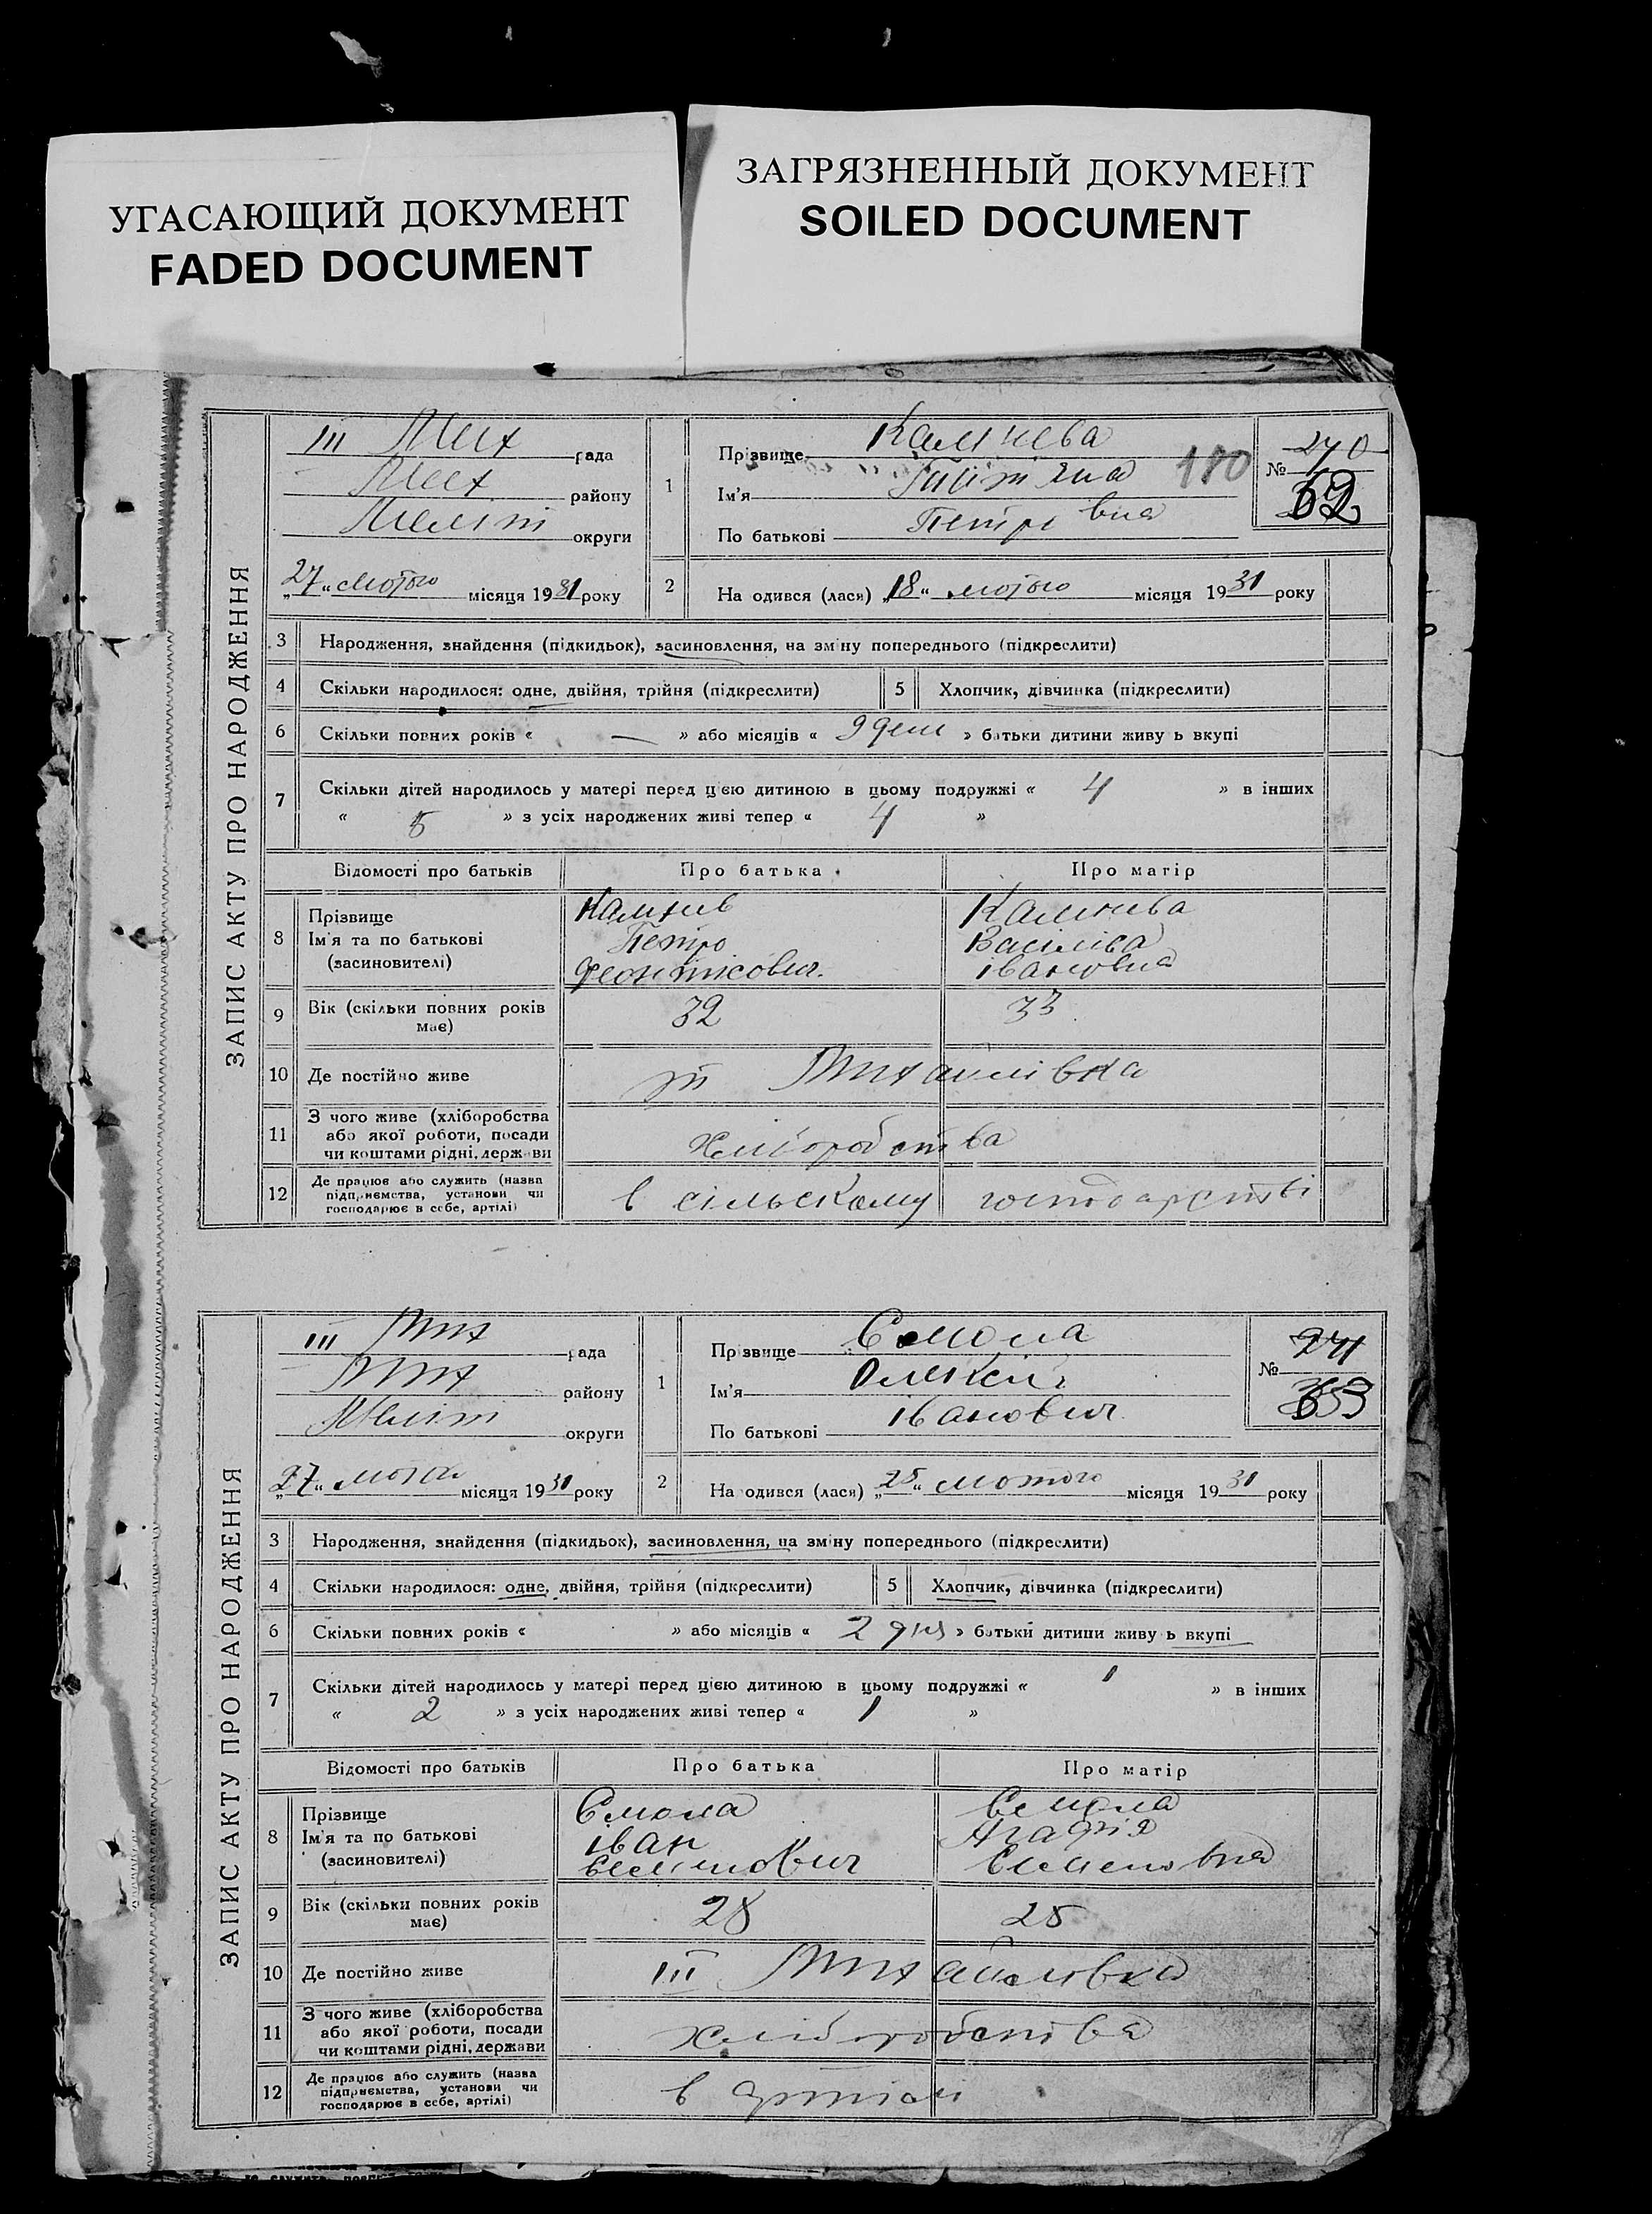 УГАСАЮЩИЙ ДОКУМЕНТ
FADED DOCUMENT
ЗАГРЯЗНЕННЫЙ ДОКУМЕНТ
SOILED DOCUMENT
ЗАПИС АКТУ ПРО НАРОДЖЕННЯ
III Мих рада
Мих району
Меліт округи
„27“ лютого місяця 1931 року
1 Прізвище
Ім'я
180
По батькові Петрівна
№ 270
62
2 На одився (лася) „18“ лютого місяця 1931 року
3 Народження, знайдення (підкидьок), засиновлення, на зміну попереднього (підкреслити)
4 Скільки народилося: одне, двійня, трійня (підкреслити) 5 Хлопчик, дівчинка (підкреслити)
6 Скільки повних років « — » або місяців « 9 дени » батьки дитини живу ь вкупі
7 Скільки дітей народилось у матері перед цією дитиною в цьому подружжі « 4 » в інших
« 5 » з усіх народжених живі тепер « 4 »
Відомості про батьків Про батька Про матір
8 Прізвище
Ім'я та по батькові Петро Васіліва
(засиновителі) івановна
9 Вік (скільки повних років має) 32 33
10 Де постійно живе Михайлівка
11 З чого живе (хліборобства або якої роботи, посади чи коштами рідні, держави хліборобства
12 Де працює або служить (назва підприємства, установи чи господарює в себе, артілі) в сільскому господарстві
ЗАПИС АКТУ ПРО НАРОДЖЕННЯ
III Мих рада
Мих району
Меліт округи
„27“ лютого місяця 1931 року
1 Прізвище Смола
Ім'я Олексій
По батькові іванович
№ 271
2 На одився (лася) „25“ лютого місяця 1931 року
3 Народження, знайдення (підкидьок), засиновлення, на зміну попереднього (підкреслити)
4 Скільки народилося: одне, двійня, трійня (підкреслити) 5 Хлопчик, дівчинка (підкреслити)
6 Скільки повних років « » або місяців « 2 дня » батьки дитини живу ь вкупі
7 Скільки дітей народилось у матері перед цією дитиною в цьому подружжі « 1 » в інших
« 2 » з усіх народжених живі тепер « 1 »
Відомості про батьків Про батька Про матір
8 Прізвище Смола
Ім'я та по батькові іван Агафія
(засиновителі) Семеновна
9 Вік (скільки повних років має) 28 25
10 Де постійно живе III Михайловка
11 З чого живе (хліборобства або якої роботи, посади чи коштами рідні, держави хліборобства
12 Де працює або служить (назва підприємства, установи чи господарює в себе, артілі) в артілі